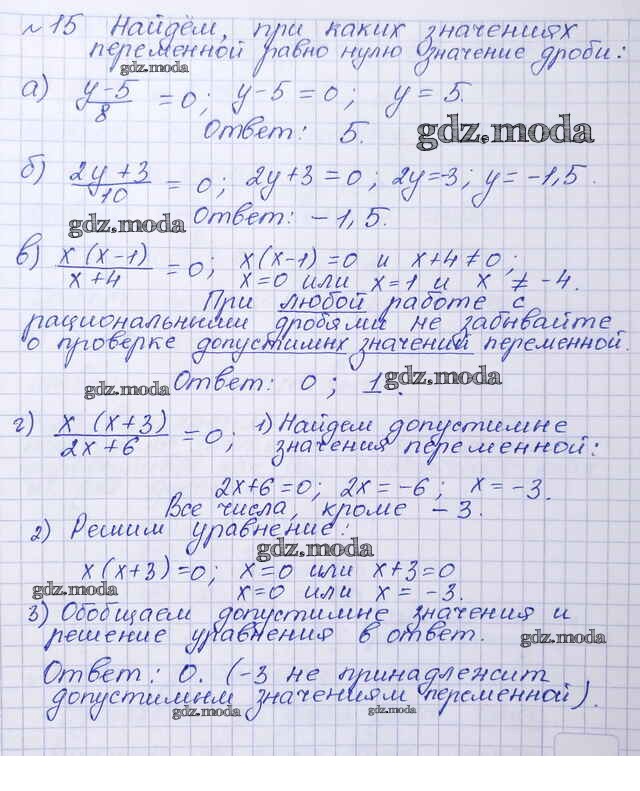 №15 Найдём, при каких значениях
переменной равно нулю значение дроби:
gdz.moda
а) (y-5)/8 = 0; y-5=0; y=5.
Ответ: 5.
gdz.moda
б) (2y+3)/10 = 0; 2y+3=0; 2y=-3; y=-1,5.
gdz.moda
Ответ: -1,5.
в) x(x-1)/(x+4) = 0; x(x-1)=0 и x+4≠0;
x=0 или x=1 и x ≠ -4.
При любой работе с
рациональными дробями не забывайте
о проверке допустимых значений переменной.
gdz.moda
Ответ: 0; 1.
gdz.moda
г) x(x+3)/(2x+6) = 0; 1) Найдем допустимие
значения переменной:
2x+6=0; 2x=-6; x=-3.
Все числа, кроме -3.
2) Решим уравнение:
gdz.moda
x(x+3)=0; x=0 или x+3=0
gdz.moda
x=0 или x=-3.
3) Обобщаем допустимие значения и
решение уравнения в ответ.
gdz.moda
Ответ: 0. (-3 не принадлежит
допустимым значениям переменной).
gdz.moda
gdz.moda